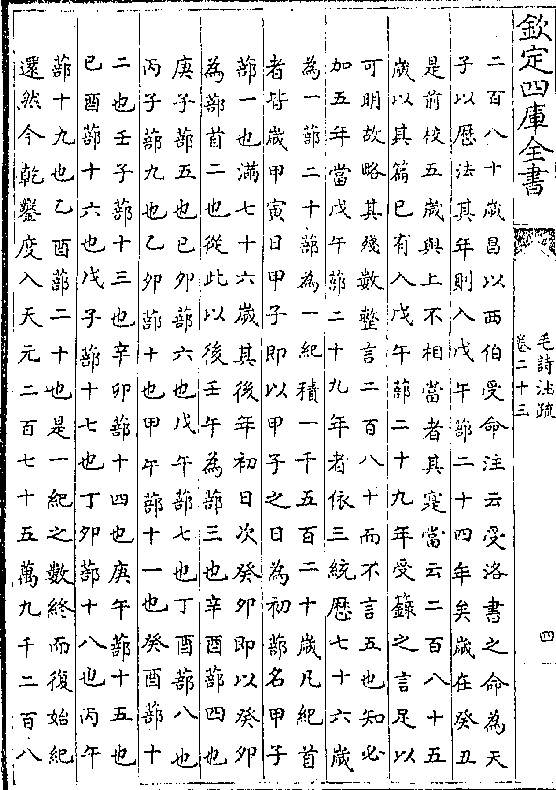 欽定四庫全書
毛詩注疏
卷二十三
四
二百八十歲昌以西伯受命注云受洛書之命為天
子以厯法其年則入戊午蔀二十四年矣歲在癸丑
是前校五歲與上不相當者其寔當云二百八十五
歲以其篇已有入戊午蔀二十九年受籙之言足以
可明故略其殘數整言二百八十而不言五也知必
加五年當戊午蔀二十九年者依三統厯七十六歲
為一蔀二十蔀為一紀積一千五百二十歲凡紀首
者皆歲甲寅日甲子即以甲子之日為初蔀名甲子
蔀一也滿七十六歲其後年初日次癸卯即以癸卯
為蔀首二也從此以後壬午為蔀三也辛酉蔀四也
庚子蔀五也已卯蔀六也戊午蔀七也丁酉蔀八也
丙子蔀九也乙卯蔀十也甲午蔀十一也癸酉蔀十
二也壬子蔀十三也辛卯蔀十四也庚午蔀十五也
已酉蔀十六也戊子蔀十七也丁卯蔀十八也丙午
蔀十九也乙酉蔀二十也是一紀之數終而復始紀
還然今乾鑿度入天元二百七十五萬九千二百八